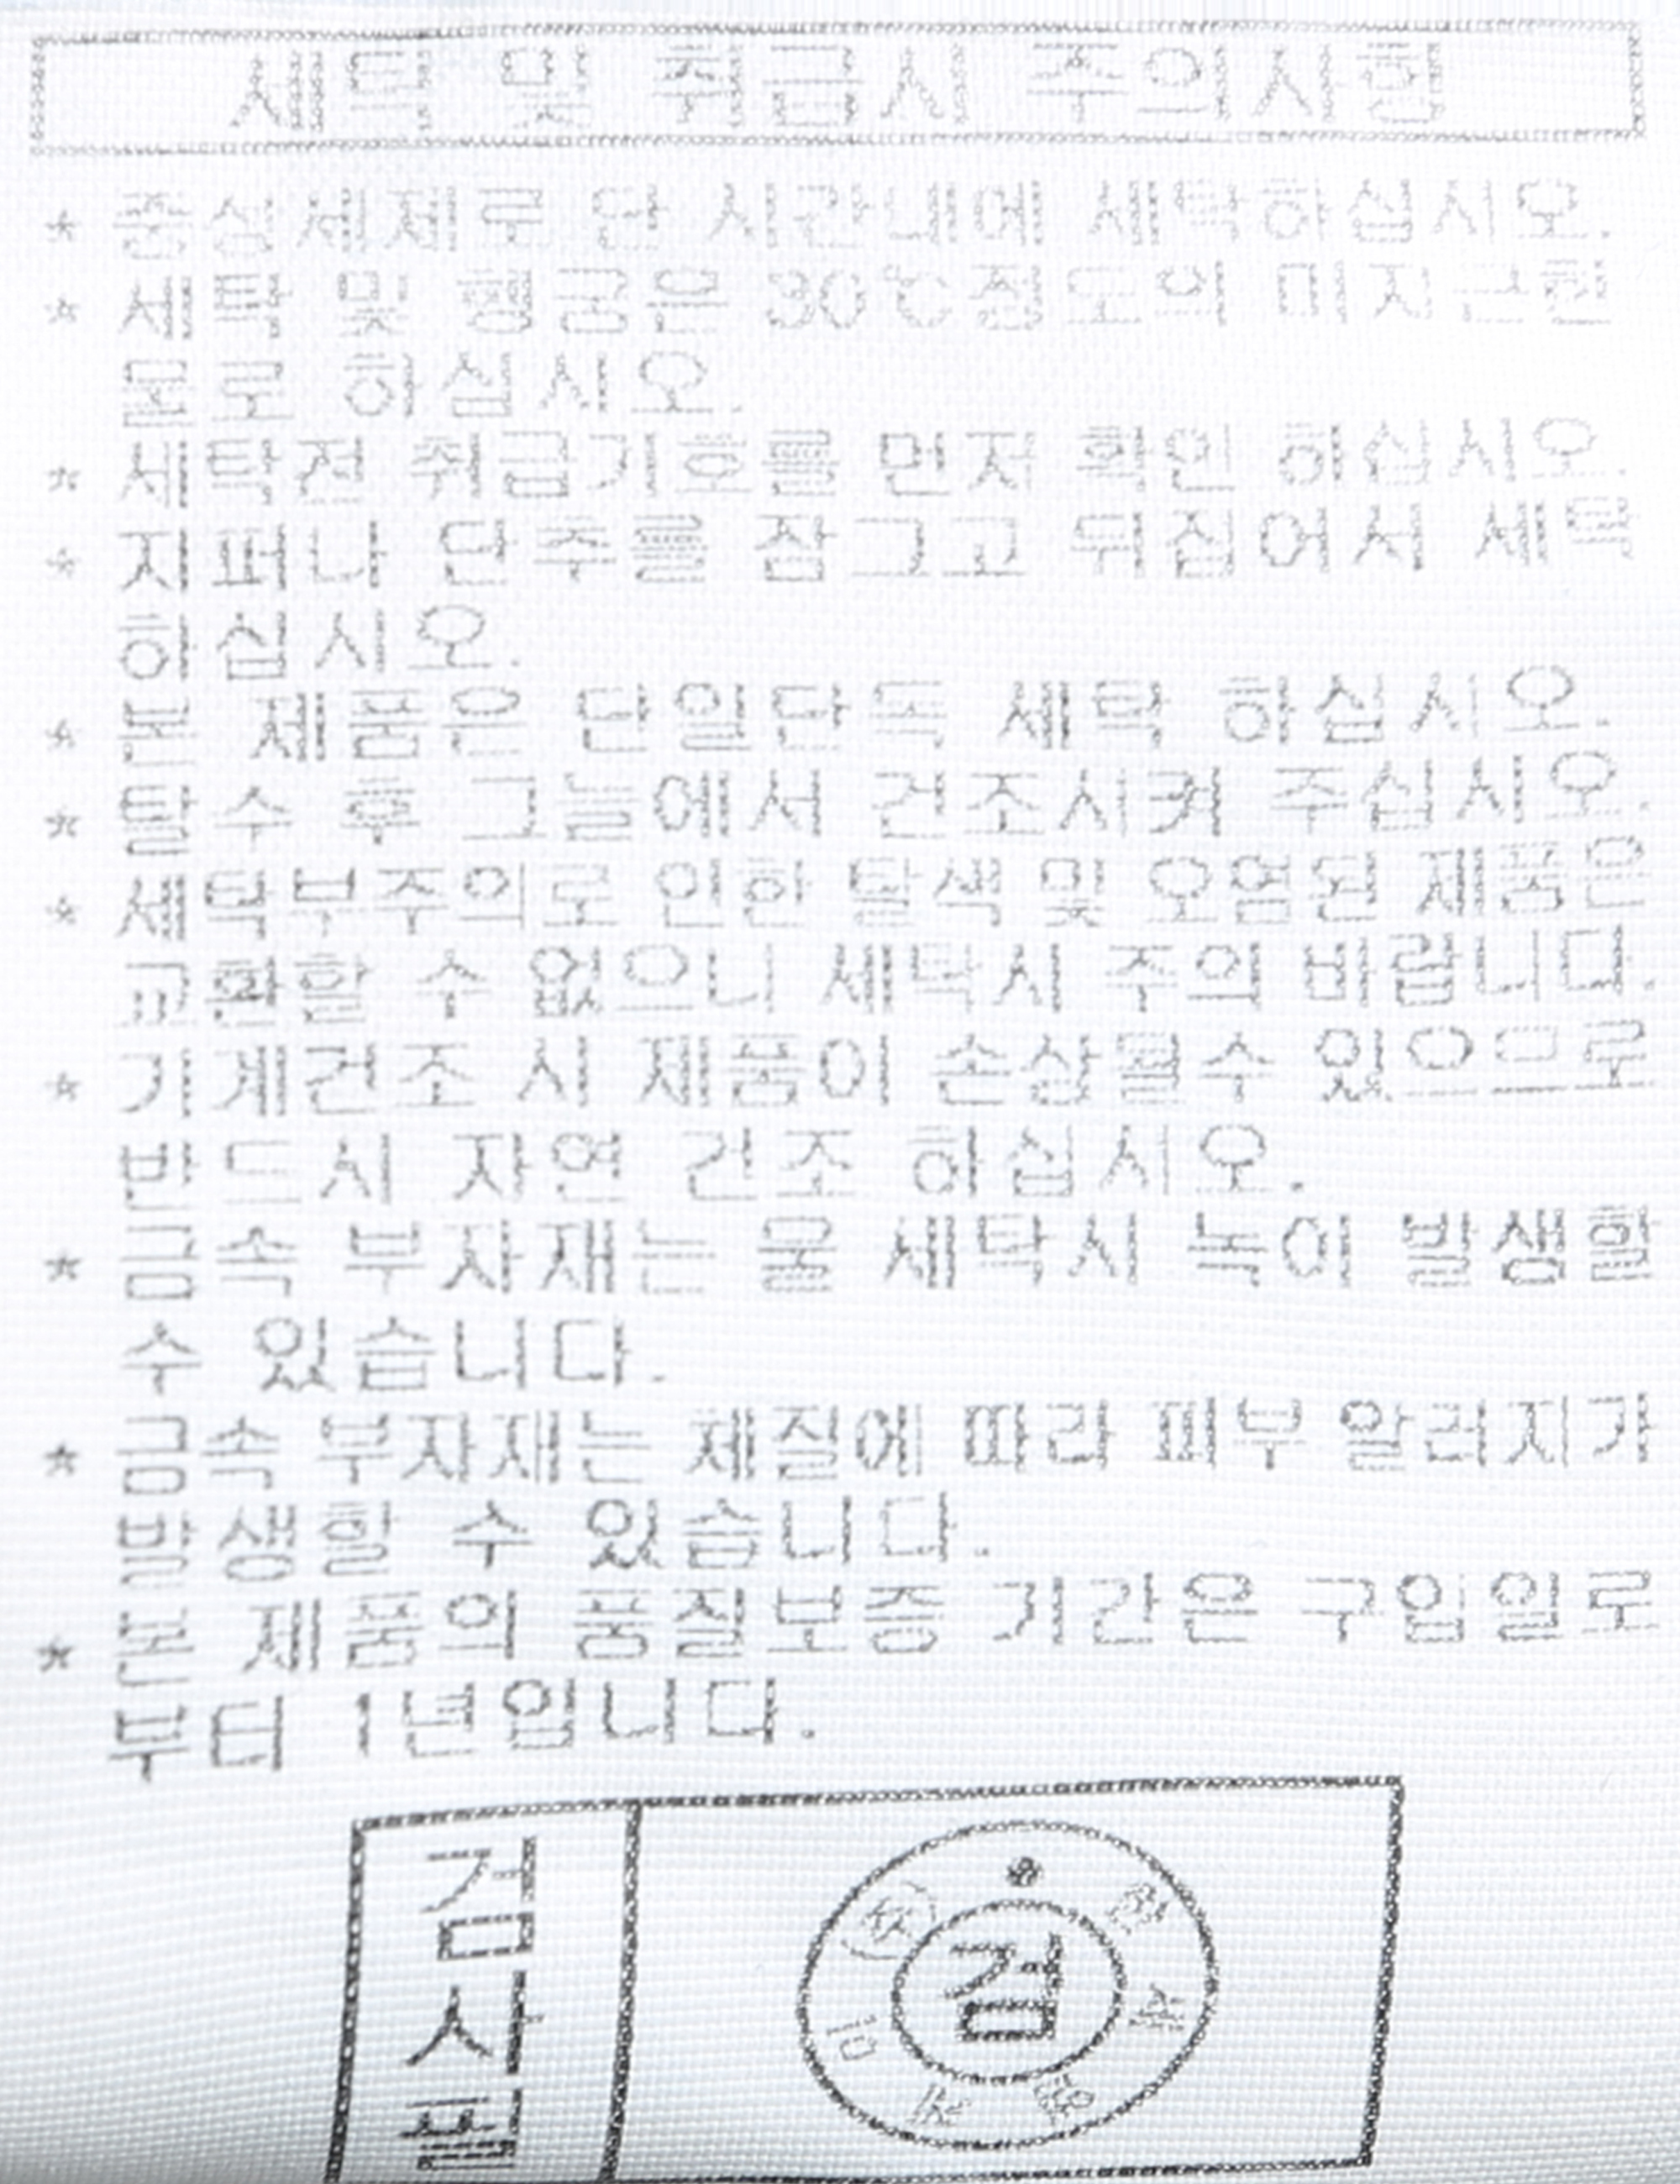 세탁 및 취급시 주의사항
* 중성세제로 단 시간내에 세탁하십시오.
* 세탁 및 헹굼은 30℃정도의 미지근한
물로 하십시오.
* 세탁전 취급기호를 먼저 확인 하십시오.
* 지퍼나 단추를 잠그고 뒤집어서 세탁
하십시오.
* 본 제품은 단일단독 세탁 하십시오.
* 탈수 후 그늘에서 건조시켜 주십시오.
* 세탁부주의로 인한 탈색 및 오염된 제품은
교환할 수 없으니 세탁시 주의 바랍니다.
* 기계건조 시 제품이 손상될수 있으므로
반드시 자연 건조 하십시오.
* 금속 부자재는 물 세탁시 녹이 발생할
수 있습니다.
* 금속 부자재는 체질에 따라 피부 알러지가
발생할 수 있습니다.
* 본 제품의 품질보증 기간은 구입일로
부터 1년입니다.
검사필
검